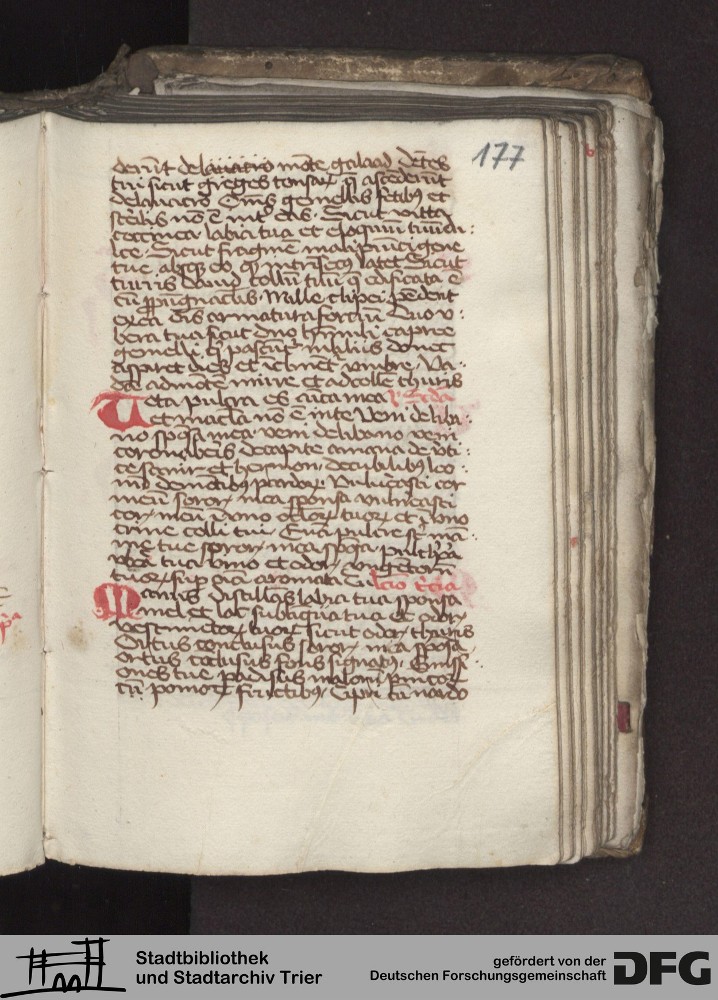 177
derūt de lauacro mōte galaad dētes
tui sicut greges tonsaꝝ q̄ ascēderūt
de lauacro Om̄s gemellis fetibꝰ et
sterilis nō ē int̄ eas. Sicut vitta
coccinea labia tua et eloquiū tuū du
lce. Sicut fragmē mali punici gene
tue absqꝫ eo qd̄ intrīsecꝰ latet Sicut
turris dauid collū tuū q̄ edificata ē
cū ꝓpugnaclis. Mille clipei pēdent
ex ea om̄is armatura fortiū Duo v
bera tua sicut duo hīnuli capree
gemelli q̄ pascūtʳ in liliis donec
aspiret dies et īclinēt vmbre. Va
dā ad mōtē mirre et ad collē thuris
Tota pulcra es amica mea Scda
et macla nō ē in te Veni de liba
no spōsa mea veni de libano veni
coronaberis de capite amana de v̄ti
ce sanir et hermon. de cubilibꝰ leo
nū de mōtibꝰ pardoꝝ. Vulnerasti cor
meū soror mea sponsa vulnerasti
cor meū ī vno ocloꝝ tuoꝝ et ī vno
crine colli tui. Quā pulcre sūt mā
me tue soror mea spōsa pulchōra
vbera tua vino et odor vngētoꝝ
tuoꝝ sup oīa aromata lc̄io t̄cia
Fauus distillās labia tua sponsa
mel et lac sub ligua tua et odor
vestimētoꝝ tuoꝝ sicut odor thuris
Ortus conclusus soror mea sponsa
ortus cōclusus fons signatꝰ. Emissi
ones tue padisus maloꝝ punicoꝝ
cū pomoꝝ fructibꝰ. Cipri cū nardo
Stadtbibliothek
und Stadtarchiv Trier
gefördert von der
Deutschen Forschungsgemeinschaft
DFG